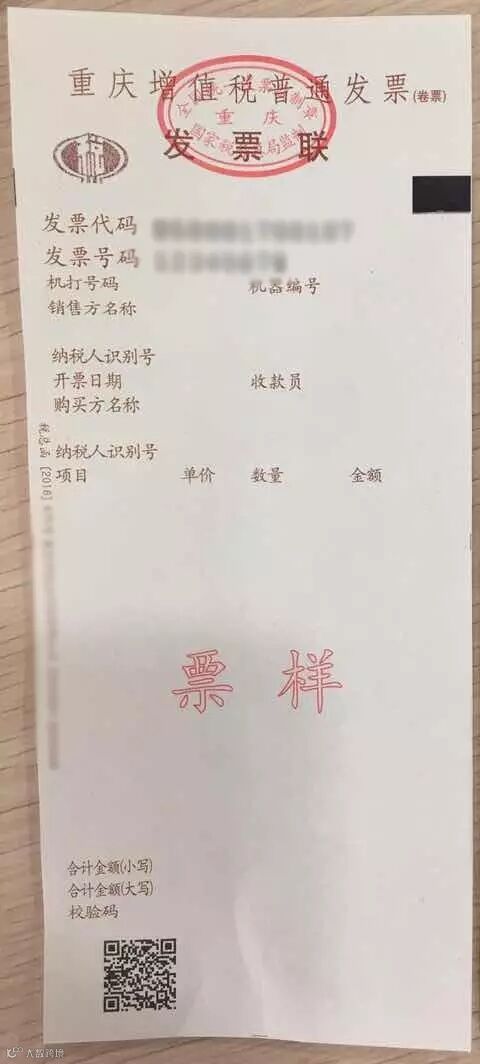 重庆增值税普通发票(卷票)
全国统一发票监制章
重庆
国家税务总局监制
发票联
发票代码
发票号码 12345678
机打号码 机器编号
销售方名称
纳税人识别号
开票日期 收款员
购买方名称
纳税人识别号
项目 单价 数量 金额
税总函 [2016]
票样
合计金额(小写)
合计金额(大写)
校验码
大数跨境